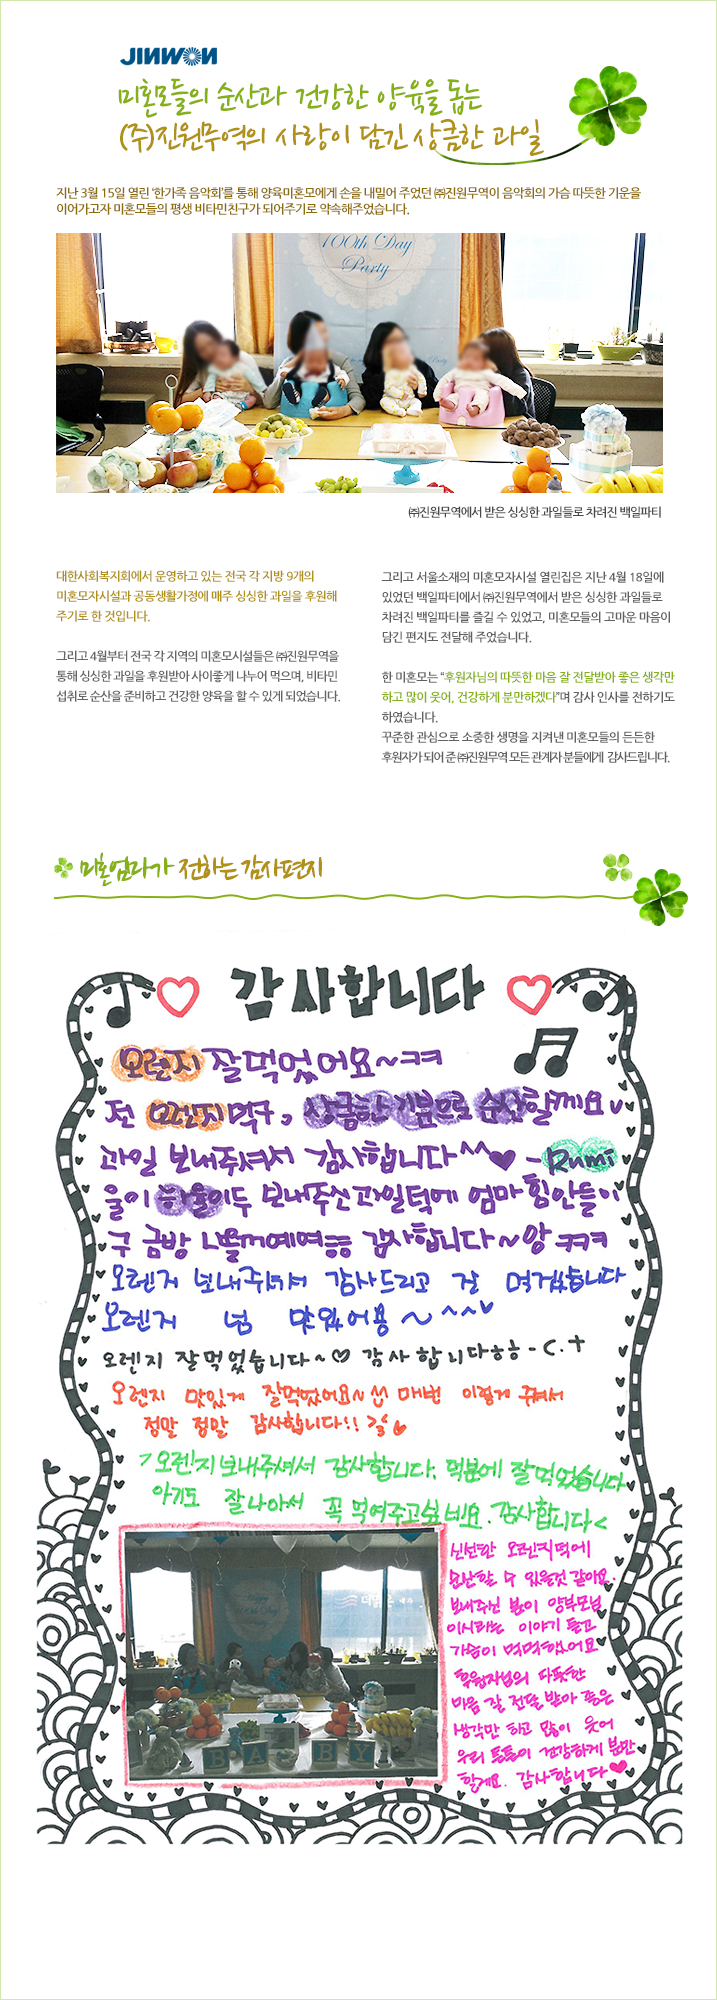 JINWON
미혼모들의 순산과 건강한 양육을 돕는
(주)진원무역의 사랑이 담긴 상큼한 과일
지난 3월 15일 열린 ‘한가족 음악회’를 통해 양육미혼모에게 손을 내밀어 주었던 ㈜진원무역이 음악회의 가슴 따뜻한 기운을
이어가고자 미혼모들의 평생 비타민친구가 되어주기로 약속해주었습니다.
100th Day
Party
㈜진원무역에서 받은 싱싱한 과일들로 차려진 백일파티
대한사회복지회에서 운영하고 있는 전국 각 지방 9개의
미혼모자시설과 공동생활가정에 매주 싱싱한 과일을 후원해
주기로 한 것입니다.
그리고 4월부터 전국 각 지역의 미혼모시설들은 ㈜진원무역을
통해 싱싱한 과일을 후원받아 사이좋게 나누어 먹으며, 비타민
섭취로 순산을 준비하고 건강한 양육을 할 수 있게 되었습니다.
그리고 서울소재의 미혼모자시설 열린집은 지난 4월 18일에
있었던 백일파티에서 ㈜진원무역에서 받은 싱싱한 과일들로
차려진 백일파티를 즐길 수 있었고, 미혼모들의 고마운 마음이
담긴 편지도 전달해 주었습니다.
한 미혼모는 “후원자님의 따뜻한 마음 잘 전달받아 좋은 생각만
하고 많이 웃어, 건강하게 분만하겠다”며 감사 인사를 전하기도
하였습니다.
꾸준한 관심으로 소중한 생명을 지켜낸 미혼모들의 든든한
후원자가 되어 준 ㈜진원무역 모든 관계자 분들에게 감사드립니다.
미혼엄마가 전하는 감사편지
♡ 감사합니다 ♡
오렌지 잘먹었어요~ㅋㅋ
전 오렌지먹구, 상큼한 기분으로 순산할께요
과일 보내주셔서 감사합니다^^♥ - Rumi
울이 하율이두 보내주신 과일덕에 엄마 힘안들이
구 금방 나올꺼예여 감사합니다~앙 ㅋㅋㅋ
오렌지 보내주셔서 감사드리고 잘 먹겠습니다
오렌지 넘 맛있어용 ~ ^^♥
오렌지 잘먹었습니다~♡ 감사합니다ㅎㅎ - C.t
오렌지 맛있게 잘먹었어요~ 매번 이렇게 주셔서
정말 정말 감사합니다!!
>오렌지보내주셔서 감사합니다. 덕분에 잘먹었습니다
아기도 잘나아서 꼭 먹여주고싶네요. 감사합니다<
신선한 오렌지덕에
순산할 수 있을것 같아요.
보내주신 분이 양부모님
이시라는 이야기 듣고
가슴이 먹먹했어요
후원자님의 따뜻한
마음 잘 전달 받아 좋은
생각만 하고 많이 웃어
우리 튼튼이 건강하게 분만
할게요. 감사합니다♥
BABY